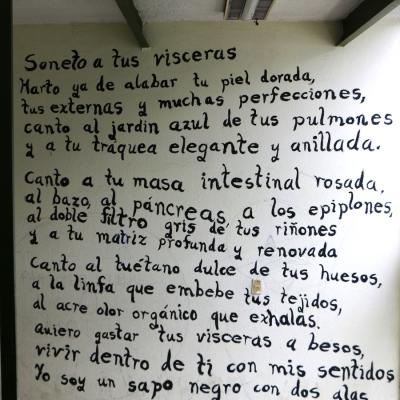 Soneto a tus visceras
Harto ya de alabar tu piel dorada,
tus externas y muchas perfecciones,
canto al jardin azul de tus pulmones
y a tu tráquea elegante y anillada.
Canto a tu masa intestinal rosada,
al bazo, al páncreas, a los epiplones,
al doble filtro gris de tus riñones
y a tu matriz profunda y renovada
Canto al tuétano dulce de tus huesos,
a la linfa que embebe tus tejidos,
al acre olor orgánico que exhalas.
Quiero gastar tus visceras a besos,
vivir dentro de ti con mis sentidos
Yo soy un sapo negro con dos alas